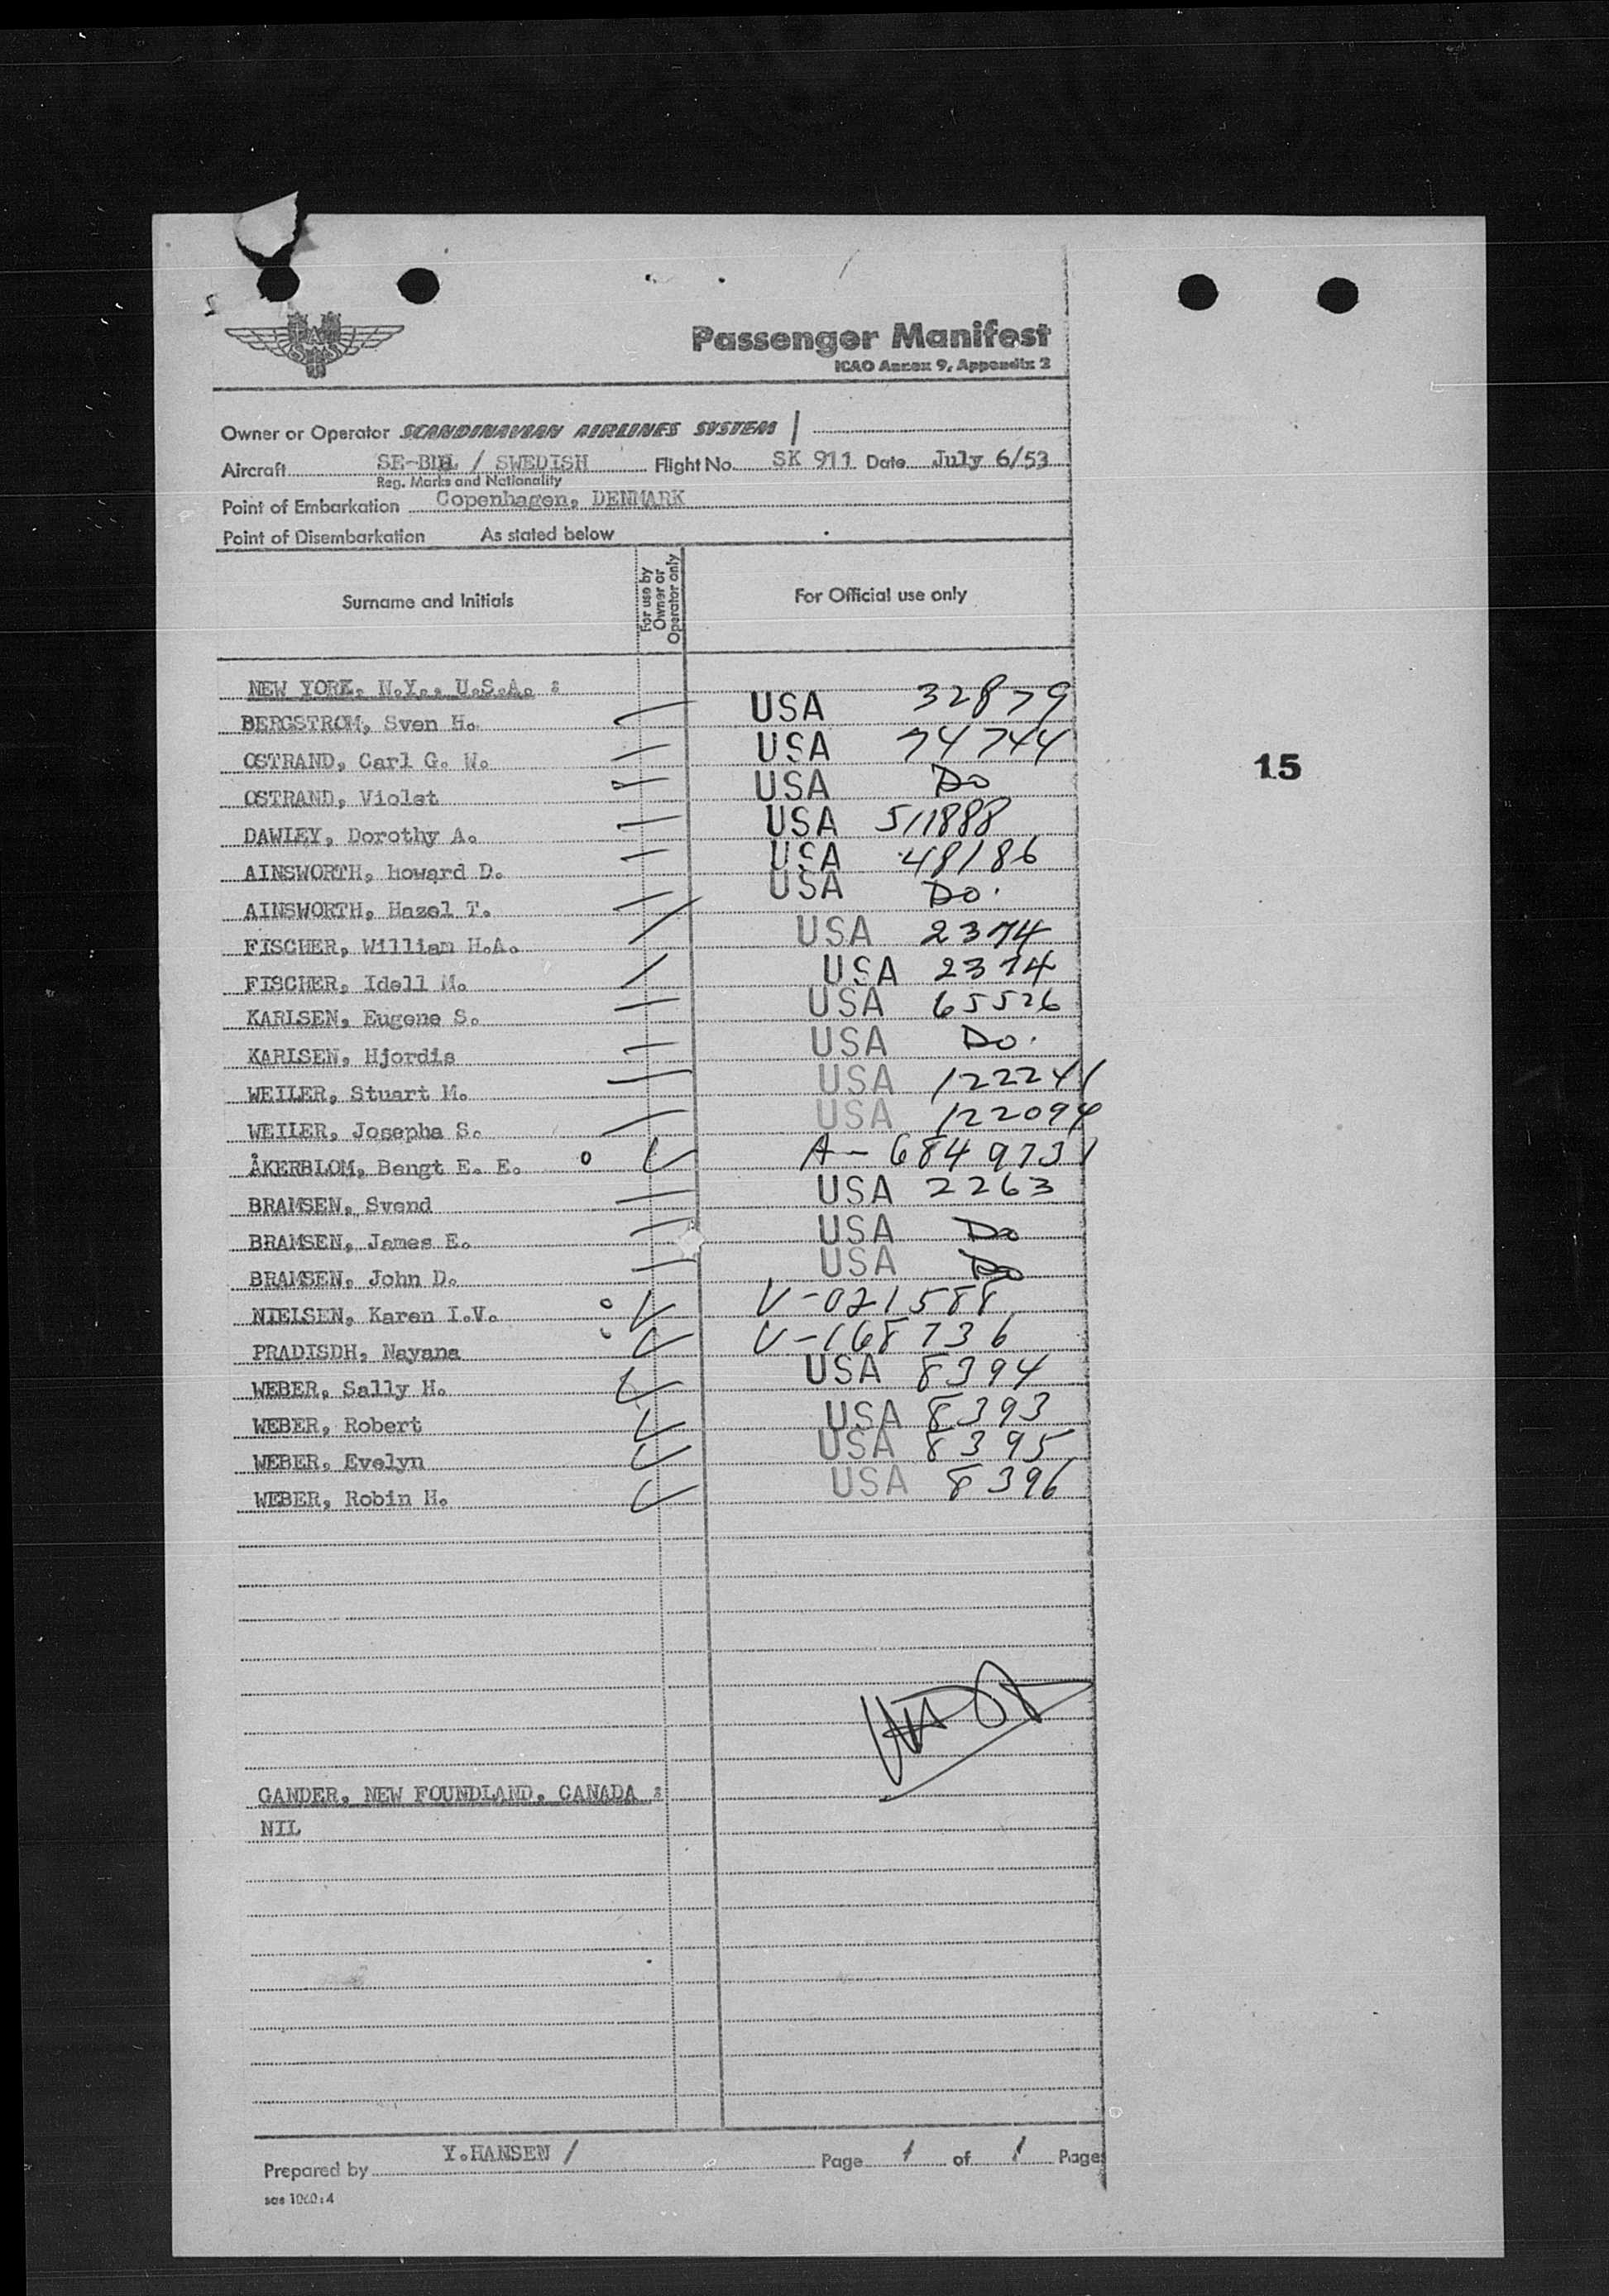 Passenger Manifest
ICAO Annex 9, Appendix 2
Owner or Operator SCANDINAVIAN AIRLINES SYSTEM
Aircraft / SWEDISH Flight No. SK 911 Date July 6/53
Reg. Marks and Nationality
Point of Embarkation Copenhagen, DENMARK
Point of Disembarkation As stated below
Surname and Initials For use by Owner or Operator only For Official use only
NEW YORK, N.Y., U.S.A. :
BERGSTROM, Sven H. USA 32879
OSTRAND, Carl G. W. USA 74744
OSTRAND, Violet USA Do
DAWLEY, Dorothy A. USA 511888
15
AINSWORTH, Howard D. USA 48186
AINSWORTH, Hazel T. USA Do.
FISCHER, William H.A. USA 2374
FISCHER, Idell M. USA 2374
KARLSEN, Eugene S. USA 65526
KARLSEN, Hjordis USA Do.
WEILER, Stuart M. USA 122241
WEILER, Josepha S. USA 122094
ÅKERBLOM, Bengt E. E. A-6849731
BRAMSEN, Svend USA 2263
BRAMSEN, James E. USA Do
BRAMSEN, John D. USA Do
NIELSEN, Karen I.V. V-021588
PRADISDH, Nayana V-168736
WEBER, Sally H. USA 8394
WEBER, Robert USA 8393
WEBER, Evelyn USA 8395
WEBER, Robin H. USA 8396
GANDER, NEW FOUNDLAND, CANADA :
NIL
Prepared by Y.HANSEN / Page 1 of 1 Pages
sas 1060:4